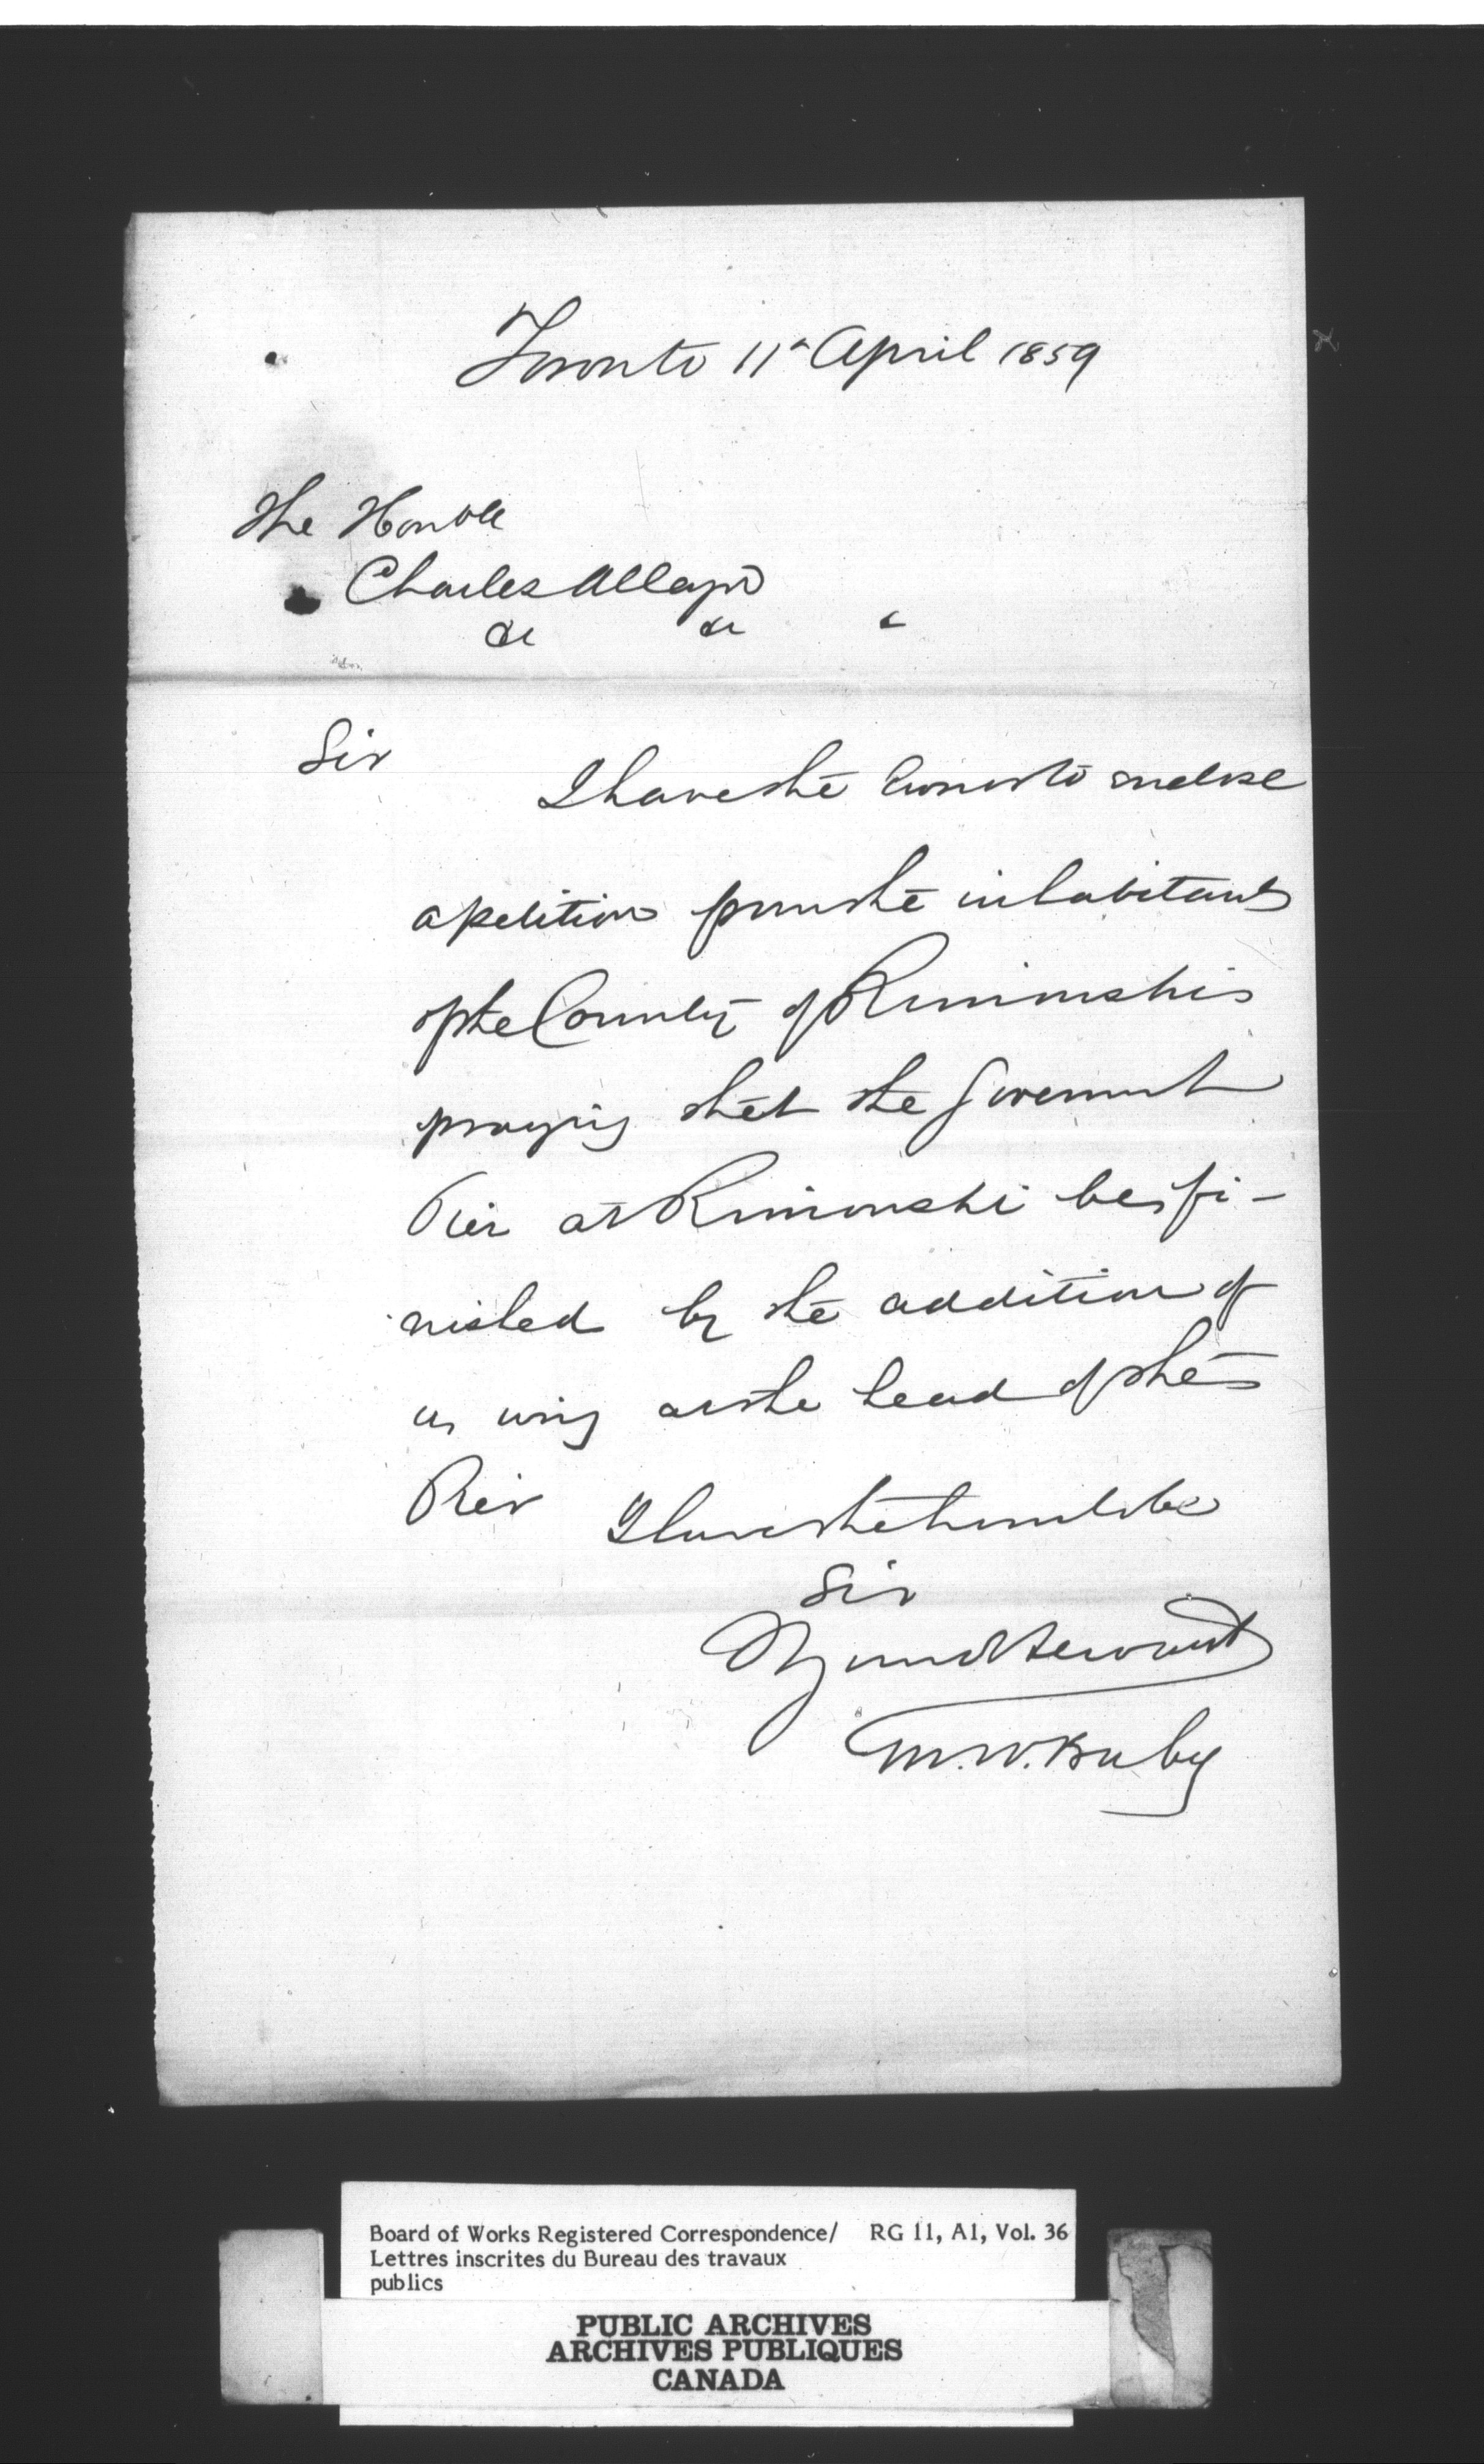 Toronto 11th April 1859
The Honble
Charles Alleyn
&c &c &c
Sir
I have the honor to enclose
a petition from the inhabitants
of the County of Rimouski
praying that the Government
Pier at Rimouski be fi-
nished by the addition of
a wing at the head of the
Pier
I have the honor to be
Sir
Your obt Servant
M. W. Baby
Board of Works Registered Correspondence/ RG 11, A1, Vol. 36
Lettres inscrites du Bureau des travaux
publics
PUBLIC ARCHIVES
ARCHIVES PUBLIQUES
CANADA